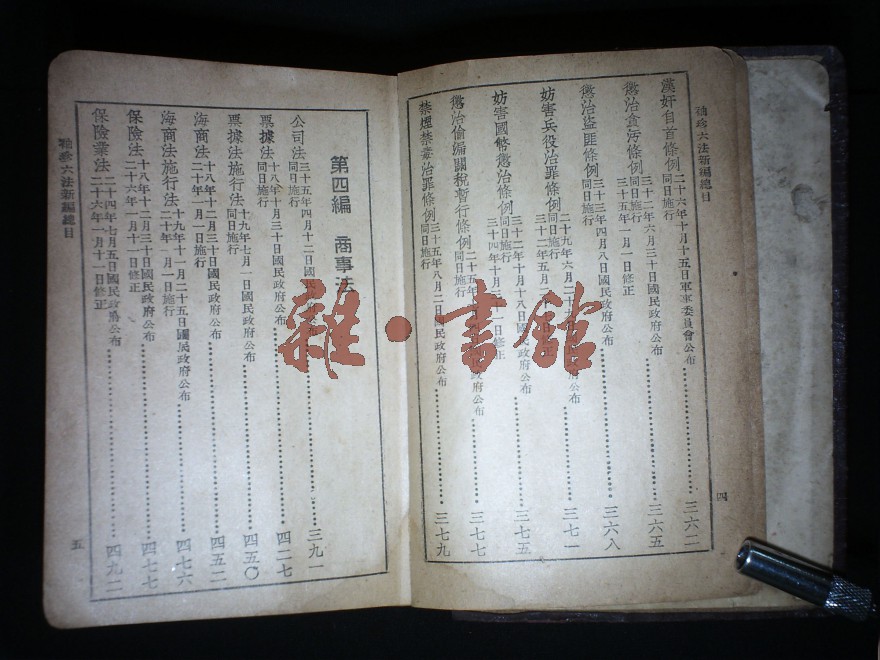 袖珍六法新編總目
漢奸自首條例 二十六年十月十五日軍事委員會公布 同日施行 三六二
懲治貪污條例 三十二年六月三十日國民政府公布 三十五年一月一日修正 三六五
懲治盜匪條例 三十三年四月八日國民政府公布 同日施行 三六八
妨害兵役治罪條例 二十九年六月二十 三十二年五月 三七一
妨害國幣懲治條例 三十二年十月十八日國民政府公布 三十四年十月三十一日修正 三七五
懲治偷漏關稅暫行條例 二十五年 國民政府公布 同日施行 三七七
禁煙禁毒治罪條例 三十五年八月二日國民政府公布 同日施行 三七九
四
第四編 商事法
公司法 三十五年四月十二日國民政府公布 同日施行 三九一
票據法 十八年十月三十日國民政府公布 同日施行 四二七
票據法施行法 十九年七月一日國民政府公布 同日施行 四五〇
海商法 十八年十二月三十日國民政府公布 二十年一月一日施行 四五二
海商法施行法 十九年十一月二十五日國民政府公布 二十年一月一日施行 四七六
保險法 十八年十二月三十日國民政府公布 二十六年一月十一日修正 四七七
保險業法 二十四年七月五日國民政府公布 二十六年一月十一日修正 四九二
袖珍六法新編總目
五
雜·書館